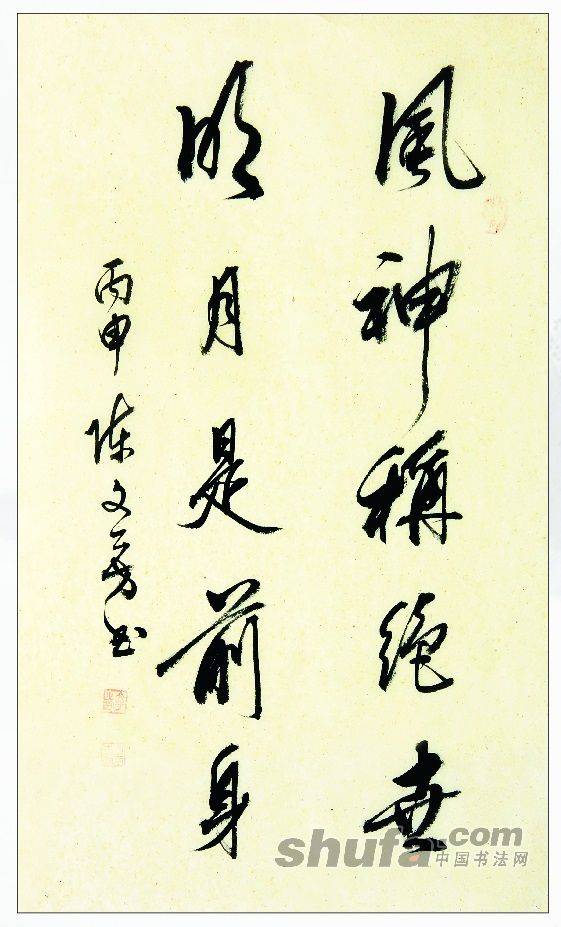 風神稱絕世
明月是前身
丙申陳文芳书
shufa.com
中国书法网